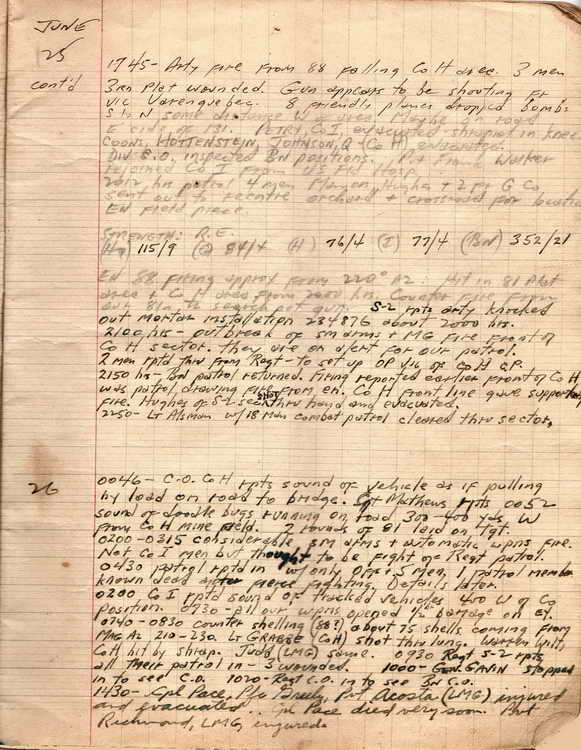 JUNE
25
cont'd
1745- Arty fire from 88 falling Co H area. 3 men
3rd Plat wounded. Gun appears to be shooting fr
vic Varenguebec. 8 friendly planes dropped bombs
S & N some distance W of area. Maybe on road
E side of 131. PETRY, Co I, evacuated - shrapnel in knee
COONS, HOTTENSTEIN, JOHNSON, Q (Co H) evacuated.
Div S.O. inspected Bn positions. Pvt Frank Worker
rejoined Co I from US Fld Hosp.
2012 hrs patrol 4 men Hughes + 2 fr G Co,
sent out to orchard + crossroad for
EN field piece.
STRENGTH: R.E.
(HQ) 115/9 (G) 84/4 (H) 76/4 (I) 77/4 (BN) 352/21
EN 88 firing approx from 220° AZ. Hit in 81 Plat
area & Co H area from 2000 hrs. Counter fire from
our 81s to gun. S-2 rpts arty knocked
out mortar installation 234876 about 2000 hrs.
2100 hrs - outbreak of sm arms & MG fire front of
Co H sector. They are on alert for our patrol.
2 men rptd thru from Regt - to set up OP vic of Co H O.P.
2150 hrs - Bn patrol returned. Firing reported earlier front of Co H
was patrol drawing fire from en. Co H front line gave supporting
fire. Hughes of S-2 sec shot thru hand and evacuated.
2250 - Lt Alsman w/ 18 man combat patrol cleared thru sector.
26
0046 - C.O. Co H rpts sound of vehicle as if pulling
hv load on road to bridge. Sgt Mathews rpts 0052
sound of doodle bugs running on road 300-400 yds W
from Co H mine field. 2 rounds of 81 laid on Tgt.
0200-0315 considerable sm arms + automatic wpns fire.
Not Co I men but thought to be fight of Regt patrol.
0430 patrol rptd in w/ only Off & 5 men, 1 patrol member
known dead after fierce fighting. Details later.
0200 Co I rptd sound of tracked vehicles 400 W of Co
position. 0730 - all our wpns opened barrage on EN.
0740-0830 counter shelling (88?) about 75 shells coming from
MAG AZ 210-230. Lt GRABBE (Co H) shot thru lung. Warren White
Co H hit by shrap. Judd (LMG) same. 0930 Regt S-2 rpts
all their patrol in - 3 wounded. 1000 - GEN. GAVIN stopped
in to see C.O. 1020 - Regt C.O. in to see Bn C.O.
1430 - Cpl Pace, Pfc Greely, Pvt Acosta (LMG) injured
and evacuated... Cpl Pace died very soon. Pvt
Richmond, LMG, injured.